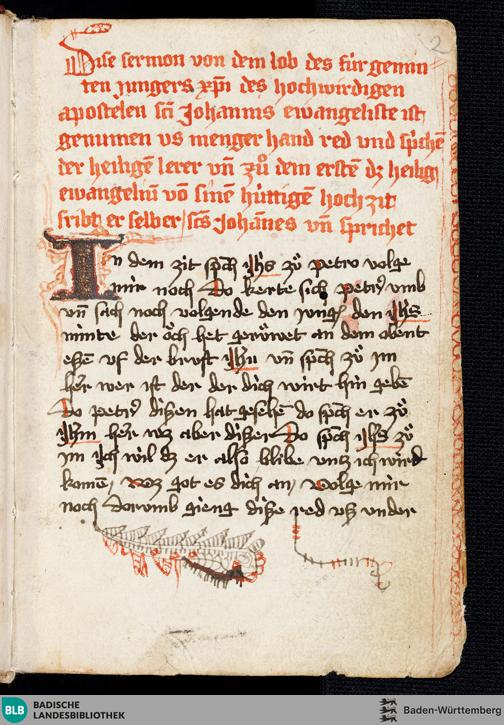 2
Dise sermon von dem lob des fúrgemin
ten jungers xp̄i des hochwirdigen
apostelen sc̄i Johannis ewangeliste ist
genumen vs menger hand red vnd sp̄chē
der heiligē lerer vn̄ zů dem erstē dz heilig
ewangeliū vō sinē húttigē hochzit
fribt er selber / sc̄s Johānes vn̄ sprichet
In dem zit sp̄ch ih̄s zů petro volge
mir noch Do kerte sich petrꝰ vmb
vn̄ sach noch volgende den jungͥ den ih̄s
minte der och het gerůwet an dem obent
essē vf der brust ih̄u vn̄ sp̄ch zů jm
her wer ist der der dich wirt hin gebē
Do petrꝰ dissen hat gesehē do sp̄ch er zů
ih̄m her wz aber disser Do sp̄ch ih̄s zů
jm Ich wil dz er also blibe vntz ich wird
komē / Woz got es dich an / volge mir
noch Dorvmb gieng disse red vss vnder
BLB
BADISCHE
LANDESBIBLIOTHEK
Baden-Württemberg